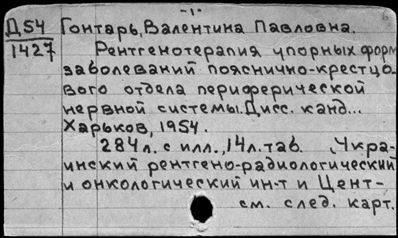 -1-
Д54 Гонтарь, Валентина Павловна.
1427 Рентгенотерапия упорных форм
заболеваний пояснично-крестцо-
вого отдела периферической
нервной системы. Дисс. канд...
Харьков, 1954.
284 л. с илл., 14 л. таб. (Укра-
инский рентгено-радиологический
и онкологический ин-т и Цент-
см. след. карт.